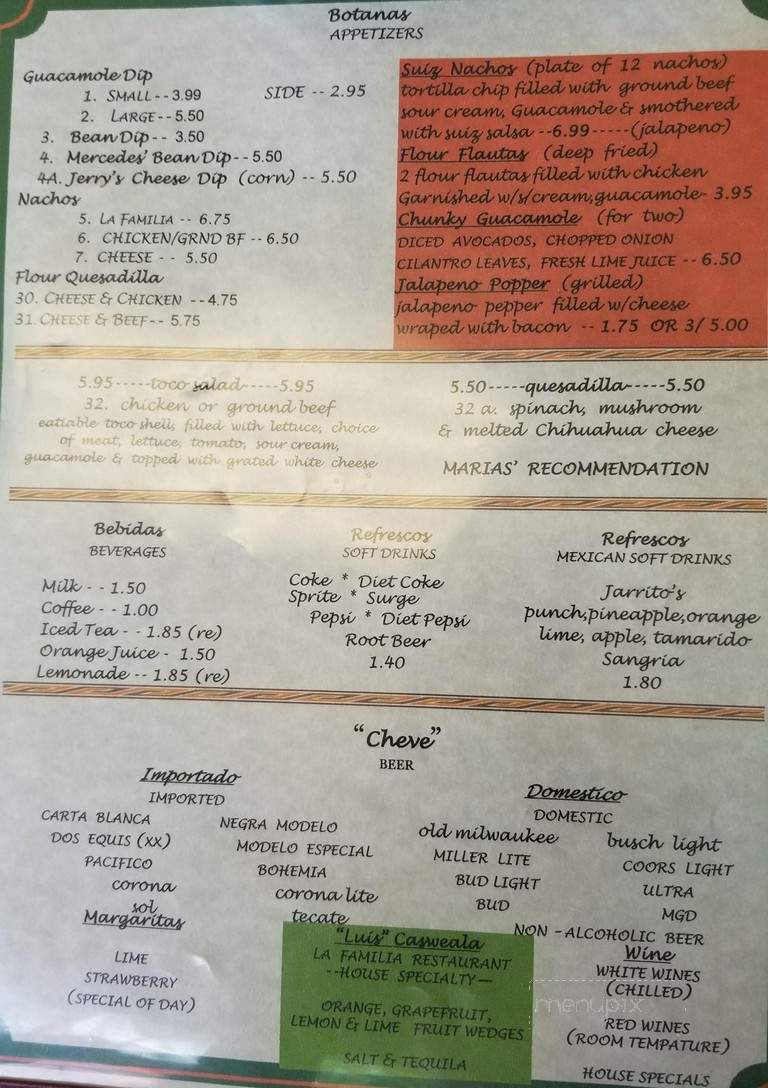 Botanas
APPETIZERS
Guacamole Dip
1. SMALL - - 3.99
SIDE -- 2.95
2. LARGE - - 5.50
3. Bean Dip - - 3.50
4. Mercedes' Bean Dip - - 5.50
4A. Jerry's Cheese Dip (corn) -- 5.50
Nachos
5. LA FAMILIA -- 6.75
6. CHICKEN/GRND BF -- 6.50
7. CHEESE - - 5.50
Flour Quesadilla
30. CHEESE & CHICKEN --4.75
31 CHEESE & BEEF-- 5.75
Suiz Nachos (plate of 12 nachos)
tortilla chip filled with ground beef
sour cream, Guacamole & smothered
with suiz salsa --6.99-----(jalapeno)
Flour Flautas (deep fried)
2 flour flautas filled with chicken
Garnished w/s/cream,guacamole- 3.95
Chunky Guacamole (for two)
DICED AVOCADOS, CHOPPED ONION
CILANTRO LEAVES, FRESH LIME JUICE -- 6.50
Jalapeno Popper (grilled)
jalapeno pepper filled w/cheese
wraped with bacon -- 1.75 OR 3/ 5.00
5.95-----toco salad-----5.95
32. chicken or ground beef
eatiable toco shell, filled with lettuce, choice
of meat, lettuce, tomato, sour cream,
guacamole & topped with grated white cheese
5.50-----quesadilla-----5.50
32 a. spinach, mushroom
& melted Chihuahua cheese
MARIAS' RECOMMENDATION
Bebidas
BEVERAGES
Milk - - 1.50
Coffee - - 1.00
Iced Tea - - 1.85 (re)
Orange Juice - 1.50
Lemonade -- 1.85 (re)
Refrescos
SOFT DRINKS
Coke * Diet Coke
Sprite * Surge
Pepsi * Diet Pepsi
Root Beer
1.40
Refrescos
MEXICAN SOFT DRINKS
Jarrito's
punch,pineapple,orange
lime, apple, tamarido
Sangria
1.80
"Cheve"
BEER
Importado
IMPORTED
CARTA BLANCA
DOS EQUIS (XX)
PACIFICO
corona
sol
NEGRA MODELO
MODELO ESPECIAL
BOHEMIA
corona lite
tecate
Domestico
DOMESTIC
old milwaukee
MILLER LITE
BUD LIGHT
BUD
busch light
COORS LIGHT
ULTRA
MGD
NON - ALCOHOLIC BEER
Margaritas
LIME
STRAWBERRY
(SPECIAL OF DAY)
"Luis" Casweala
LA FAMILIA RESTAURANT
--HOUSE SPECIALTY—
ORANGE, GRAPEFRUIT,
LEMON & LIME FRUIT WEDGES
SALT & TEQUILA
Wine
WHITE WINES
(CHILLED)
RED WINES
(ROOM TEMPATURE)
HOUSE SPECIALS
menupix